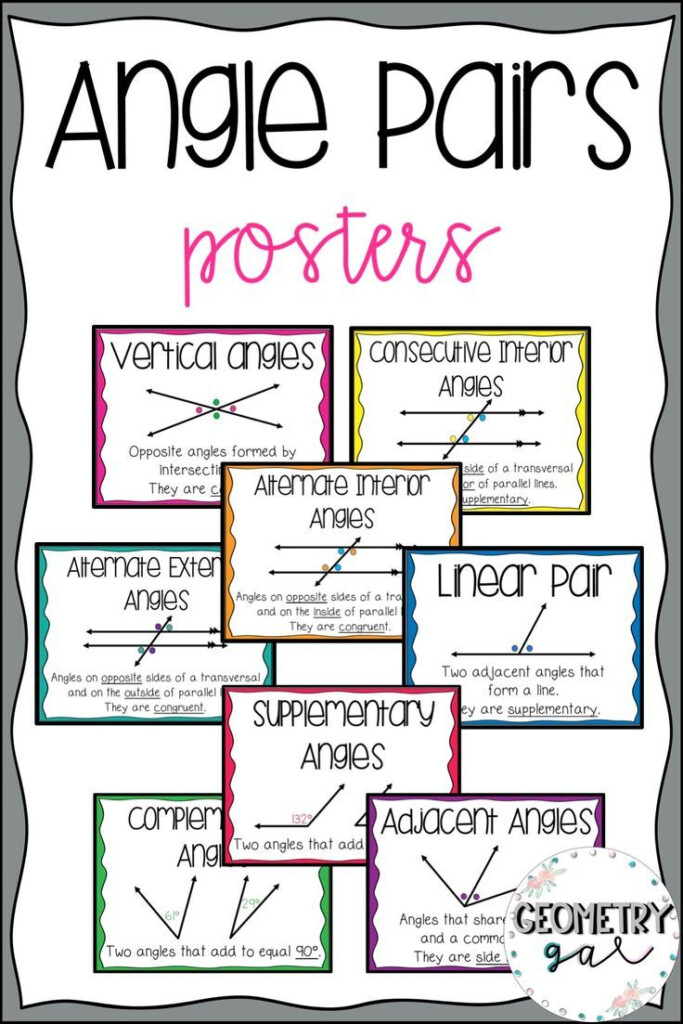 Angle Pairs
posters
Vertical Angles
Opposite angles formed by
intersecting
They are
Consecutive Interior
Angles
side of a transversal
of parallel lines.
supplementary.
Alternate Interior
Angles
Angles on opposite sides of a
and on the inside of parallel
They are congruent.
Alternate
Angles
Angles on opposite sides of a transversal
and on the outside of parallel
They are congruent.
Linear Pair
Two adjacent angles that
form a line.
They are supplementary.
Supplementary
Angles
132°
Two angles that add
Angles
61°
29°
Two angles that add to equal 90°.
Adjacent Angles
Angles that share
and a
They are side
GEOMETRY
gal